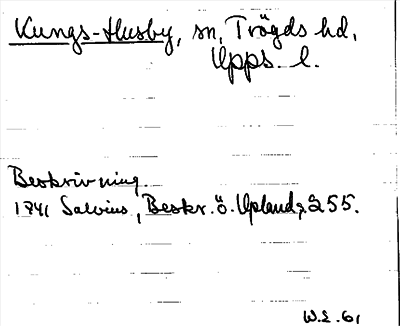 Kungs-Husby, sn, Trögds hd,
Upps. l.
Beskrivning.
1741 Salvius, Beskr. ö. Upland, s. 255.
W.L. 61